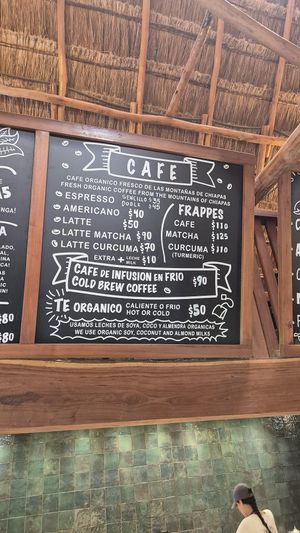 CAFE
CAFE ORGANICO FRESCO DE LAS MONTAÑAS DE CHIAPAS
FRESH ORGANIC COFFEE FROM THE MOUNTAINS OF CHIAPAS
ESPRESSO SENCILLO $35
DOBLE $45
AMERICANO $40
LATTE $50
LATTE MATCHA $90
LATTE CURCUMA $70
EXTRA + LECHE MILK $10
FRAPPES
CAFE $110
MATCHA $125
CURCUMA $110
(TURMERIC)
CAFE DE INFUSION EN FRIO
COLD BREW COFFEE $90
TE ORGANICO CALIENTE O FRIO
HOT OR COLD $50
USAMOS LECHES DE SOYA, COCO Y ALMENDRA ORGANICAS
WE USE ORGANIC SOY, COCONUT AND ALMOND MILKS
$80
$80